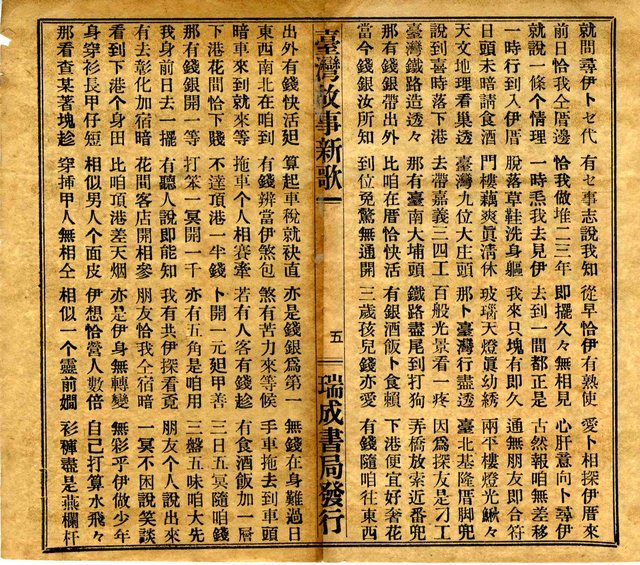 就問尋伊卜乜代 有乜事志說我知 從早恰伊有熟使 愛卜相探伊厝來
前日恰我仝厝邊 恰我做堆二三年 即擺久々無相見 心肝意向卜尋伊
就說一條个情理 一時悉我去見伊 去到一間都正是 古然報咱無差移
一時行到入伊厝 脫落草鞋洗身軀 我來只塊有即久 通無朋友即合符
日頭未暗請食酒 門樓藕爽真清休 玻璃天燈真幼綉 兩平樓燈光鰍々
天文地理看巢透 臺灣九位大庄頭 那卜臺灣行盡透 臺北基隆厝脚兜
說到喜時落下港 去帶嘉義三四工 百般光景看一疼 因為探友是刁工
臺灣鐵路造透々 那有臺南大埔頭 鐵路盡尾到打狗 弄橋放索近番兜
那有錢銀帶出外 比咱在厝恰快活 有銀酒飯卜食賴 下港便宜好奢花
當今錢銀汝所知 到位免驚無通開 三歲孩兒錢亦愛 有錢隨咱往東西
臺灣故事新歌一 五 瑞成書局發行
出外有錢快活廷 算起車稅就袂直 亦是錢銀為第一 無錢在身難過日
東西南北在咱到 有錢辨當伊煞包 煞有苦力來等候 手車拖去到車頭
暗車來到就來等 拖車个人相賽牽 若有人客有錢趁 有食酒飯加一層
下港花間恰下賤 不達頂港一半錢 卜開一元廷甲善 三日五冥隨咱錢
那有錢銀開一等 打笨一冥開一千 亦有五角是咱用 三盤五味咱大先
我身前日去一擺 有聽人說即能知 我有共伊探看覓 朋友个人說出來
有去彰化加宿暗 花間客店開相參 朋友恰我仝宿暗 一冥不困說笑談
看到下港个身田 比咱頂港差天烟 亦是伊身無轉變 無彩乎伊做少年
身穿衫長甲仔短 相似男人个面皮 伊想恰營人數倍 自己打算水飛々
那看查某著塊趁 穿插甲人無相仝 相似一个靈前嫺 衫褲盡是燕欄杆